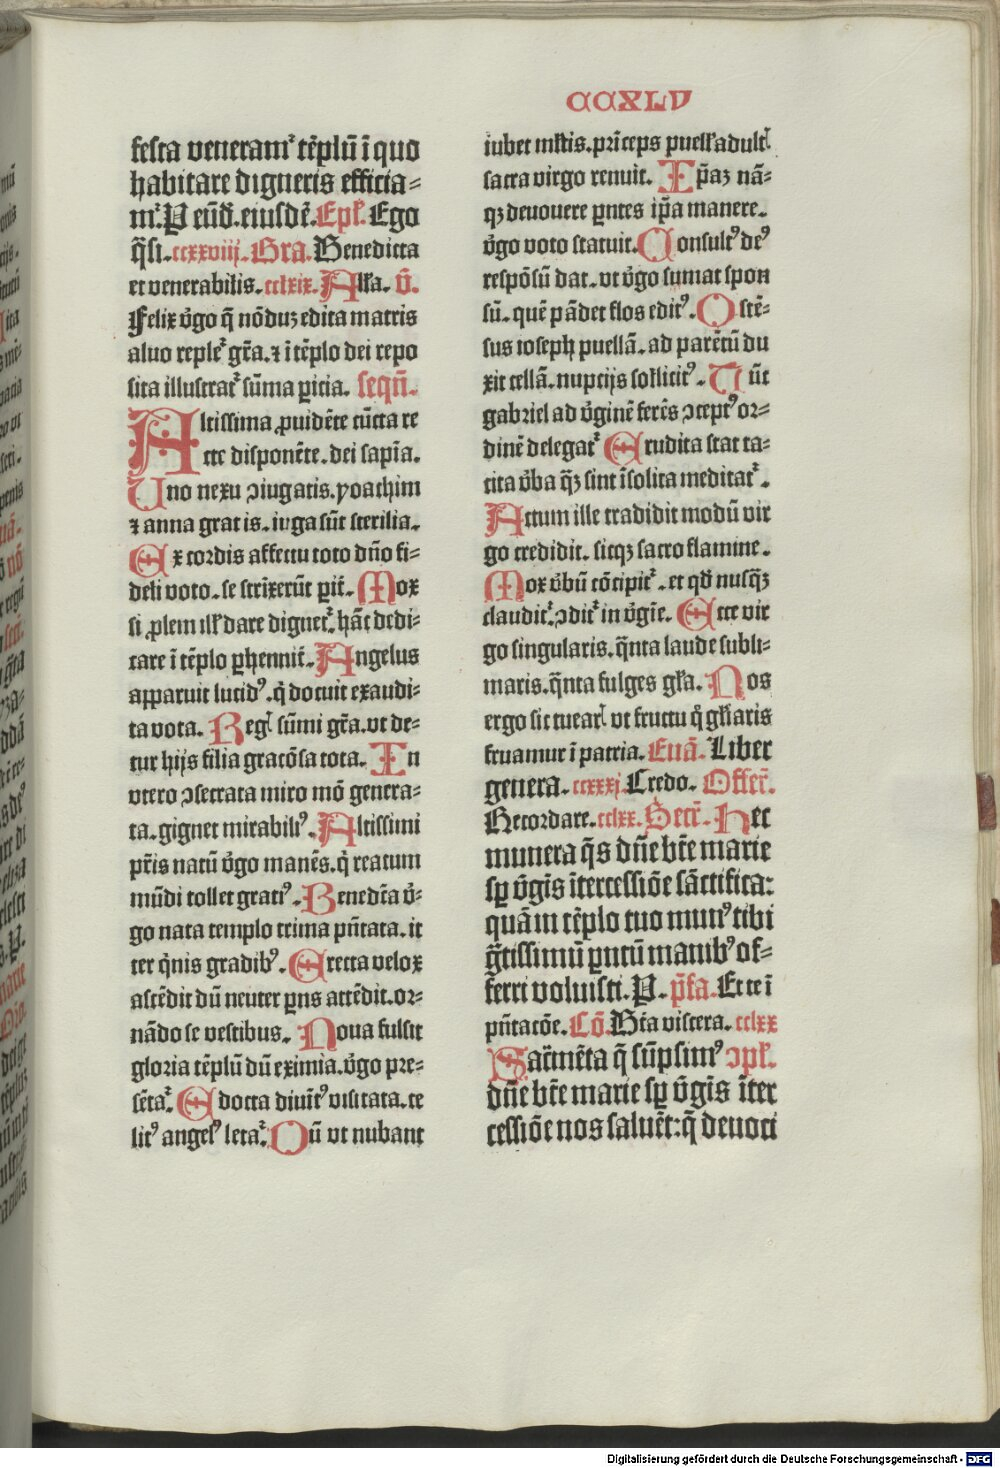 CCXLV
festa veneram᷑ tēplū ī quo
habitare digneris efficia⸗
m᷑. P eūd̄. eiusdē. Epl̄. Ego
q̄si. ccxxviij. Gra. Benedicta
et venerabilis. cclxix. Alla. v̄.
Felix v̄go q̄ nōduz edita matris
aluo reple᷑ gr̄a. ⁊ ī tēplo dei repo
sita illustrat᷑ sūma p̄icia. sequē.
Altissima ꝓuidēte cūcta re
cte disponēte. dei sapīa.
Uno nexu ꝯiugatis. yoachim
⁊ anna grat is. iuga sūt sterilia.
Ex cordis affectu toto dn̄o fi⸗
deli voto. se strīxerūt ꝑit̄. Mox
si ꝓlem ill̄ dare dignet᷑. hāc dedi⸗
care ī tēplo ꝑhennit̄. Angelus
apparuit lucidꝰ. q̄ docuit exaudi⸗
ta vota. Regꝭ sūmi gr̄a. vt de⸗
tur hijs filia gracōsa tota. In
vtero ꝯsecrata miro mō genera⸗
ta. gignet mirabilīꝰ. Altissimi
pr̄is natū v̄go manēs. q̄ reatum
mūdi tollet gratīꝰ. Benedc̄a v̄⸗
go nata templo trima pn̄tata. it
ter q̄nis gradibꝰ. Erecta velox
ascēdit dū neuter ꝑns attēdit. or⸗
nādo se vestibus. Noua fulsit
gloria tēplū dū eximia. v̄go pre⸗
sētat᷑. Edocta diuīt᷑ꝰ visitata. ce
litꝰ angelꝭ leta᷑. Cū vt nubant
iubet mīstis. prīceps puell̄ adultꝭ
sacra virgo renuit. Ip̄az nā⸗
qz deuouere ꝑntes ip̄a manere.
v̄go voto statuit. Consultꝰ deꝰ
respōsū dat. vt v̄go sumat spon
sū. quē pādet flos editꝰ. Ostē⸗
sus ioseph puellā. ad parētū du
xit cellā. nupcijs sollicitꝰ. Nūc
gabriel ad v̄ginē ferēs ꝯceptꝰ or⸗
dinē delegat᷑ Erudita stat ta⸗
cita v̄ba q̄z sint īsolita meditat᷑.
Actum ille tradidit modū vir
go credidit. sicqz sacro flamine.
Mox v̄bū cōcipit᷑. et qd̄ nusq̄z
claudit᷑. ꝯdit᷑ in v̄gīe. Ecce vir
go singularis. q̄nta laude subli⸗
maris. q̄nta fulges gl̄a. Nos
ergo sic tuearꝭ vt fructu q̄ gl̄iaris
fruamur ī patria. Euā. Liber
genera. ccxxxj. Credo. Offert̄.
Recordare. cclxx. Secr̄. Hec
munera q̄s dn̄e bt̄e marie
sp̱ v̄gīs īntercessiōe sāctifica:
quā in tēplo tuo munꝰ tibi
g̃tissimū ꝑntū manibꝰ of⸗
ferri voluisti. P. p̄fa. Et te ī
pn̄tatōe. Cō. Bt̄a viscera. cclxx
Sacr̄mēta q̄ sūpsimꝰ ꝯpl̄.
dn̄e bt̄e marie sp̱ v̄gīs īter
cessiōe nos saluēt: q̄ deuoti
Digitalisierung gefördert durch die Deutsche Forschungsgemeinschaft - DFG